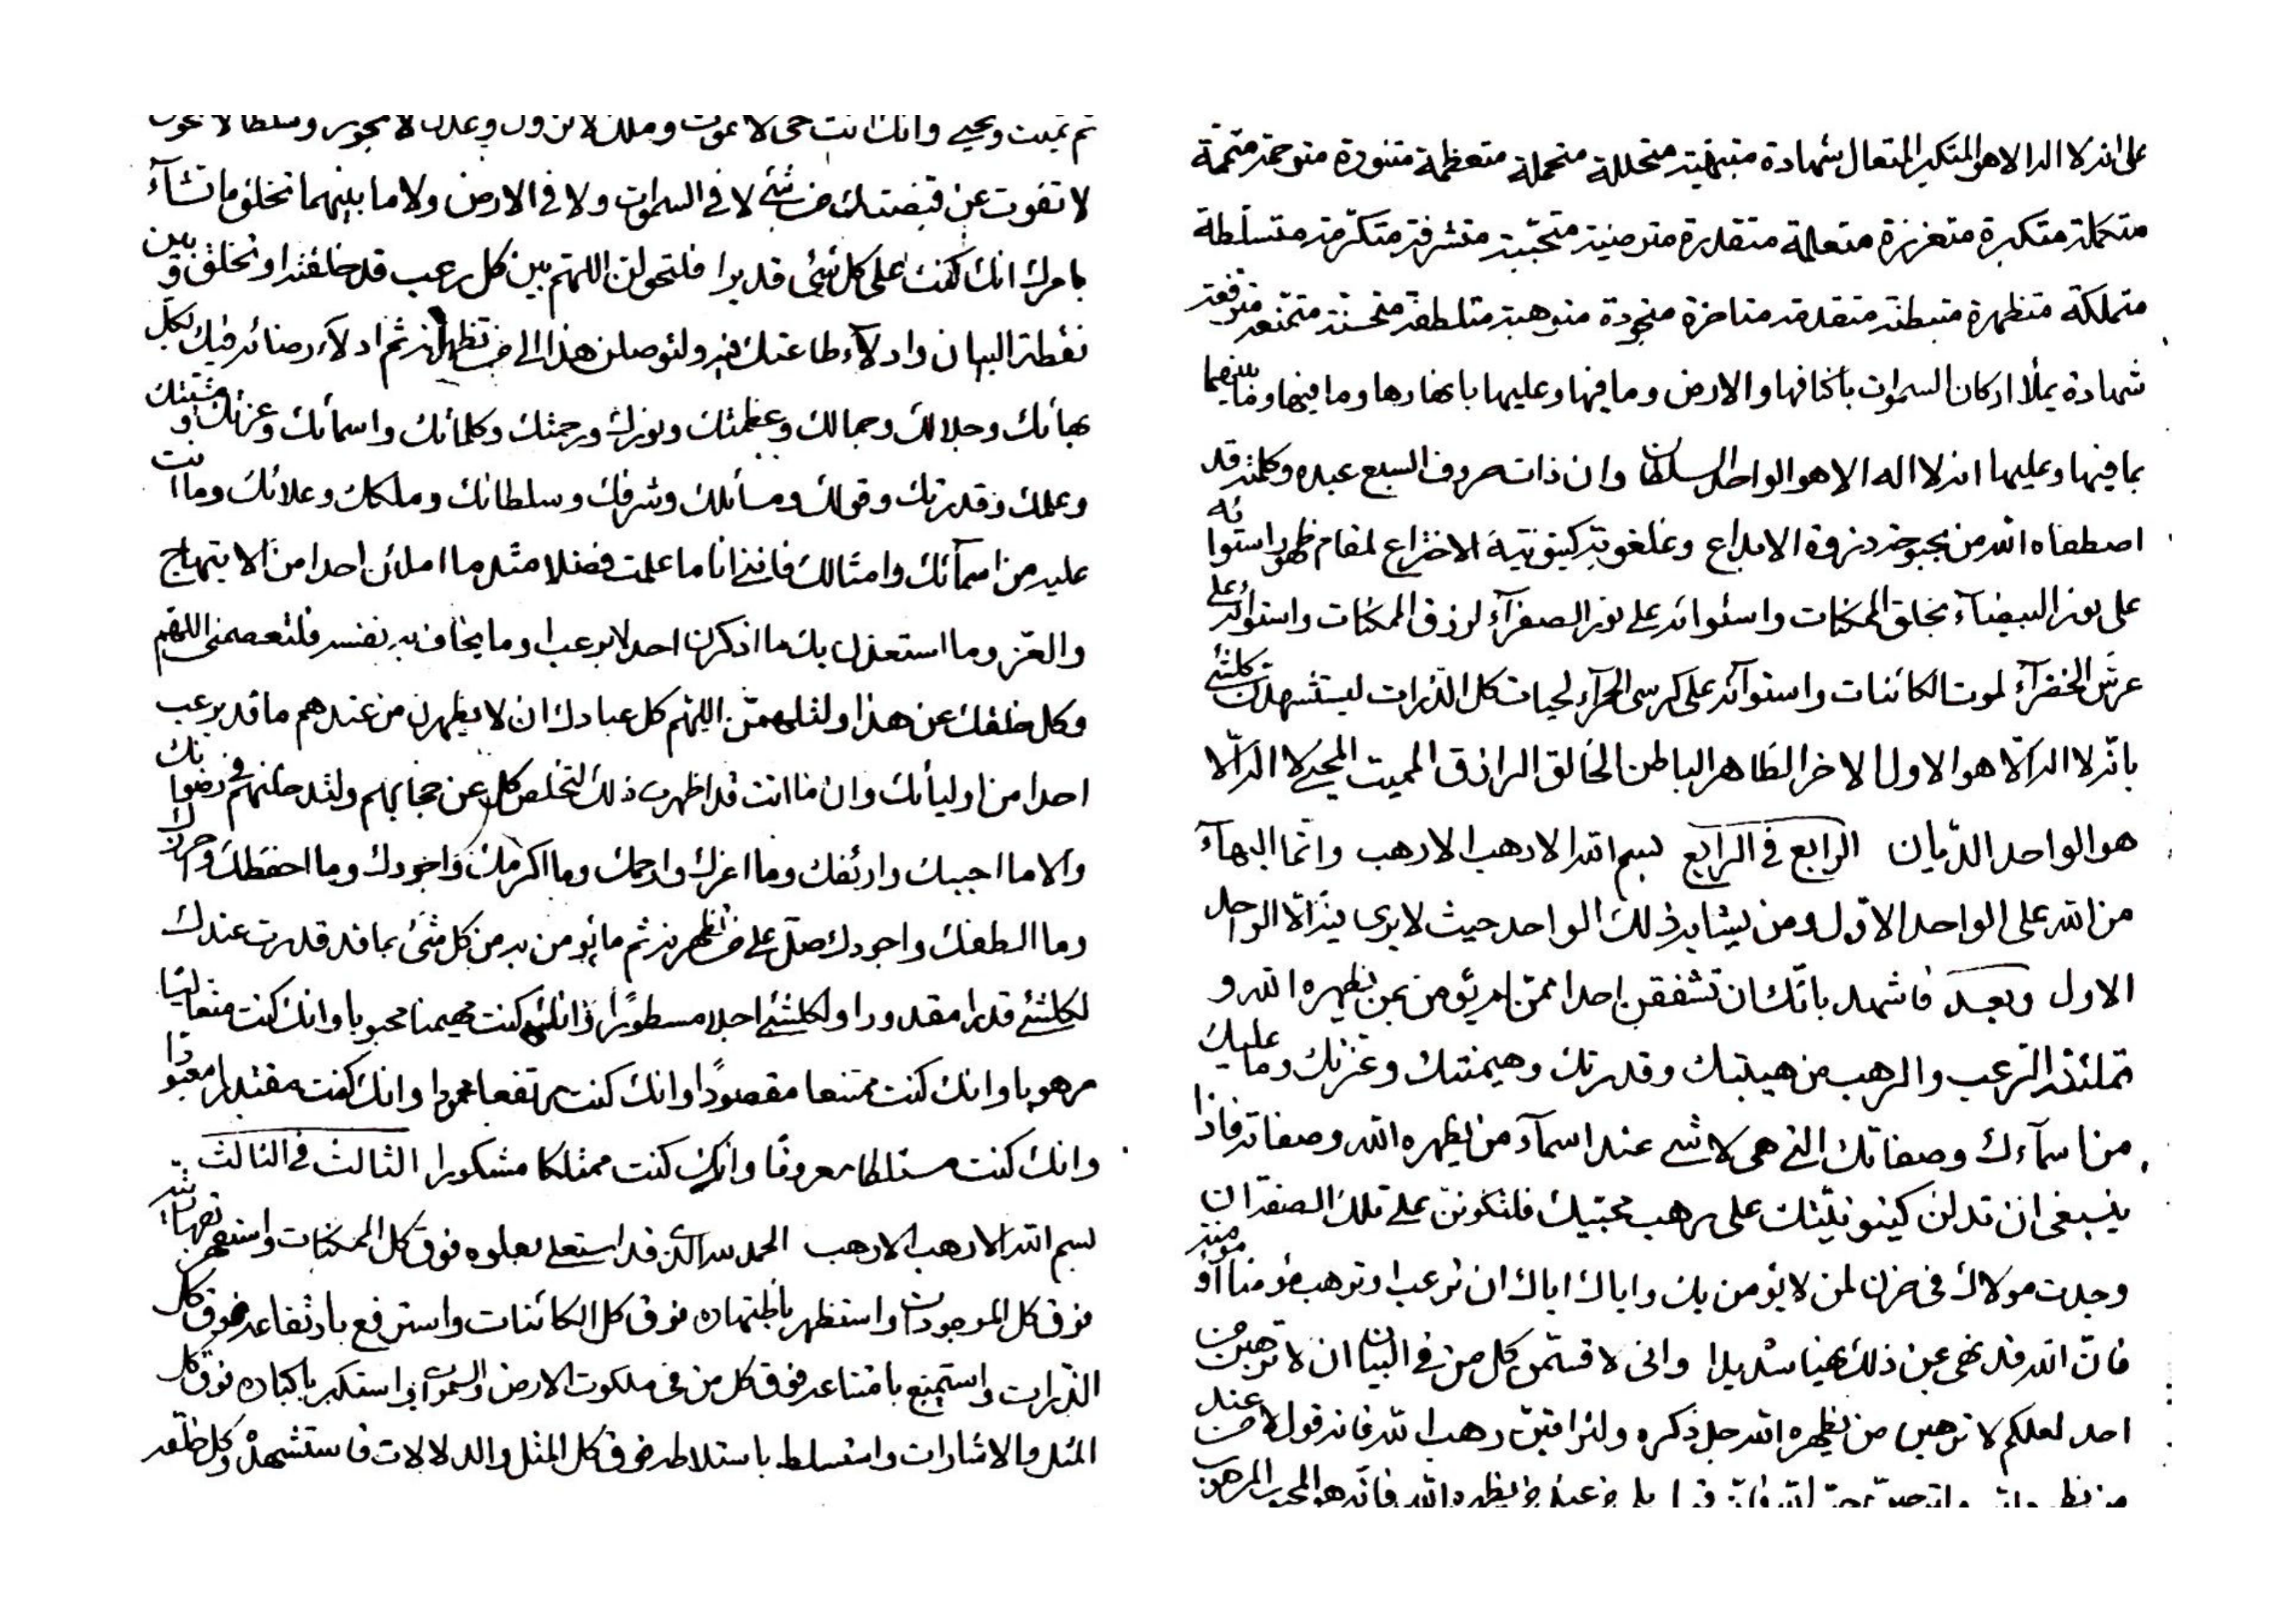 ثم تميت وتحيي وانك انت حي لا تموت وملك لا تزول وعدل لا تجور وسلطان لا تحول
لا تفوت عن قبضتك من شئ لا في السموات ولا في الارض ولا ما بينهما تخلق ما تشآء
بامرك انك كنت على كل شئ قديرا فلتحولن اللهم بين كل رعب قد خلقته او تخلق وبين
نقطة البيان وادلآء طاعتك فيه ولتوصلن هذا الى من تظهرنه ثم ادلآء رضائه فيك لكل
بهائك وجلالك وجمالك وعظمتك ونورك ورحمتك وكلماتك واسمائك وعزتك ومشيتك
وعلمك وقدرتك وقولك ومسائلك وشرفك وسلطانك وملكك وعلائك وما انت
عليه من اسمآئك وامثالك فانني انا ما علمت فضلا مثل ما املئن احدا من الابتهاج
والعز وما استعذن بك ما اذكرن احدا لا برعب او ما يخاف به نفسه فلتعصمني اللهم
وكل خلقك عن هذا ولتلهمن اللهم كل عبادك ان لا يظهرن من عندهم ما قد يرعب
احدا من اوليائك وان ما انت قد اظهرت ذلك لتخلص كل عن حجابهم ولتدخلنهم في رضوانك
والا ما احببك وارئفك وما اعزك وارحمك وما اكرمك واجودك وما احفظك واحرزك
وما الطفك واجودك صل على من تظهرنه ثم ما يؤمن به من كل شئ بما قد قدرت عندك
لكلشئ قدرا مقدورا ولكلشئ اجلا مسطورًا وانك كنت مهيمنا محبوبا وانك كنت متعاليا
مرهوبا وانك كنت ممتنعا مقصودًا وانك كنت مرتفعا محمودا وانك كنت مقتدرا معبودا
وانك كنت مستلطا معروفا وانك كنت ممتلكا مشكورا الثالث في الثالث
بسم الله الارهب الارهب الحمد لله الذي قد استعلى بعلوه فوق كل الممكنات واستقهر بقهاريته
فوق كل الموجودات واستظهر باظتهاره فوق كل الكائنات واسترفع بارتفاعه فوق كل
الذرات واستمنع بامتناعه فوق كل من في ملكوت الارض والسموات واستكبر باكتباره فوق كل
المثل والاشارات واستسلط باستلاطه فوق كل المثل والدلالات فاستشهده وكل خلقه
على انه لا اله الا هو المتكبر المتعال شهادة متبهية متجللة متجملة متعظمة متنورة مترحمة متممة
متكملة متكبرة متعززة متعالمة متقدرة مترضية متحببة متشرفة متكرمة متسلطة
متملكة متظهرة متبطنة متقدمة متاخرة متجودة متوهبة متلطفة متحسنة متمنعة مترفعة
شهادة يملأ اركان السموات باكنافها وما فيها وعليها والارض باقطارها وما فيها وما بينهما
بما فيها وعليها انه لا اله الا هو الواحد السلطان وان ذات حروف السبع عبده وكلمته قد
اصطفاه الله من بحبوحة ذروة الابداع وكينونية الاختراع لمقام ظهور استوائه
على نور البيضآء بخلق الممكنات واستوائه على نور الصفرآء لرزق الممكنات واستوائه على
عرش الخضرآء لموت الكائنات واستوآئه على كرسي الحمرآء لحيات كل الذرات ليستشهدن كلشئ
بانه لا اله الا هو الاول الاخر الظاهر الباطن الخالق الرازق المميت المحيي لا اله الا
هو الواحد الديان الرابع في الرابع بسم الله الارهب الارهب وانما البهآء
من الله على الواحد الاول ومن يشابه ذلك الواحد حيث لا يرى فيه الا الواحد
الاول وبعد فاشهد بانك ان تشفقن احدا ممن لم يؤمن بمن يظهره الله و
تملئنه الرعب والرهب من هيبتك وقدرتك وهيمنتك وعزتك وما عليك
من اسمآءك وصفاتك التي هي لا شئ عند اسمآء من يظهره الله وصفاته فاذا
ينبغى ان تدلن كينونيتك على رهب محبتك فلتكونن على تلك الصفة ان
وجدت مولاك في حزن لمن لا يؤمن بك واياك اياك ان ترعب او ترهب مؤمنا او مؤمنة
فان الله قد نهى عن ذلك نهيا شديدا وانى لاقسمن كل من في البيان ان لا ترهبن من
احد لعلكم لا ترهبن من يظهره الله جل ذكره ولتراقبن رهب الله فانه قول من عند
من يظهره الله فانه هو المحبوب المرهوب